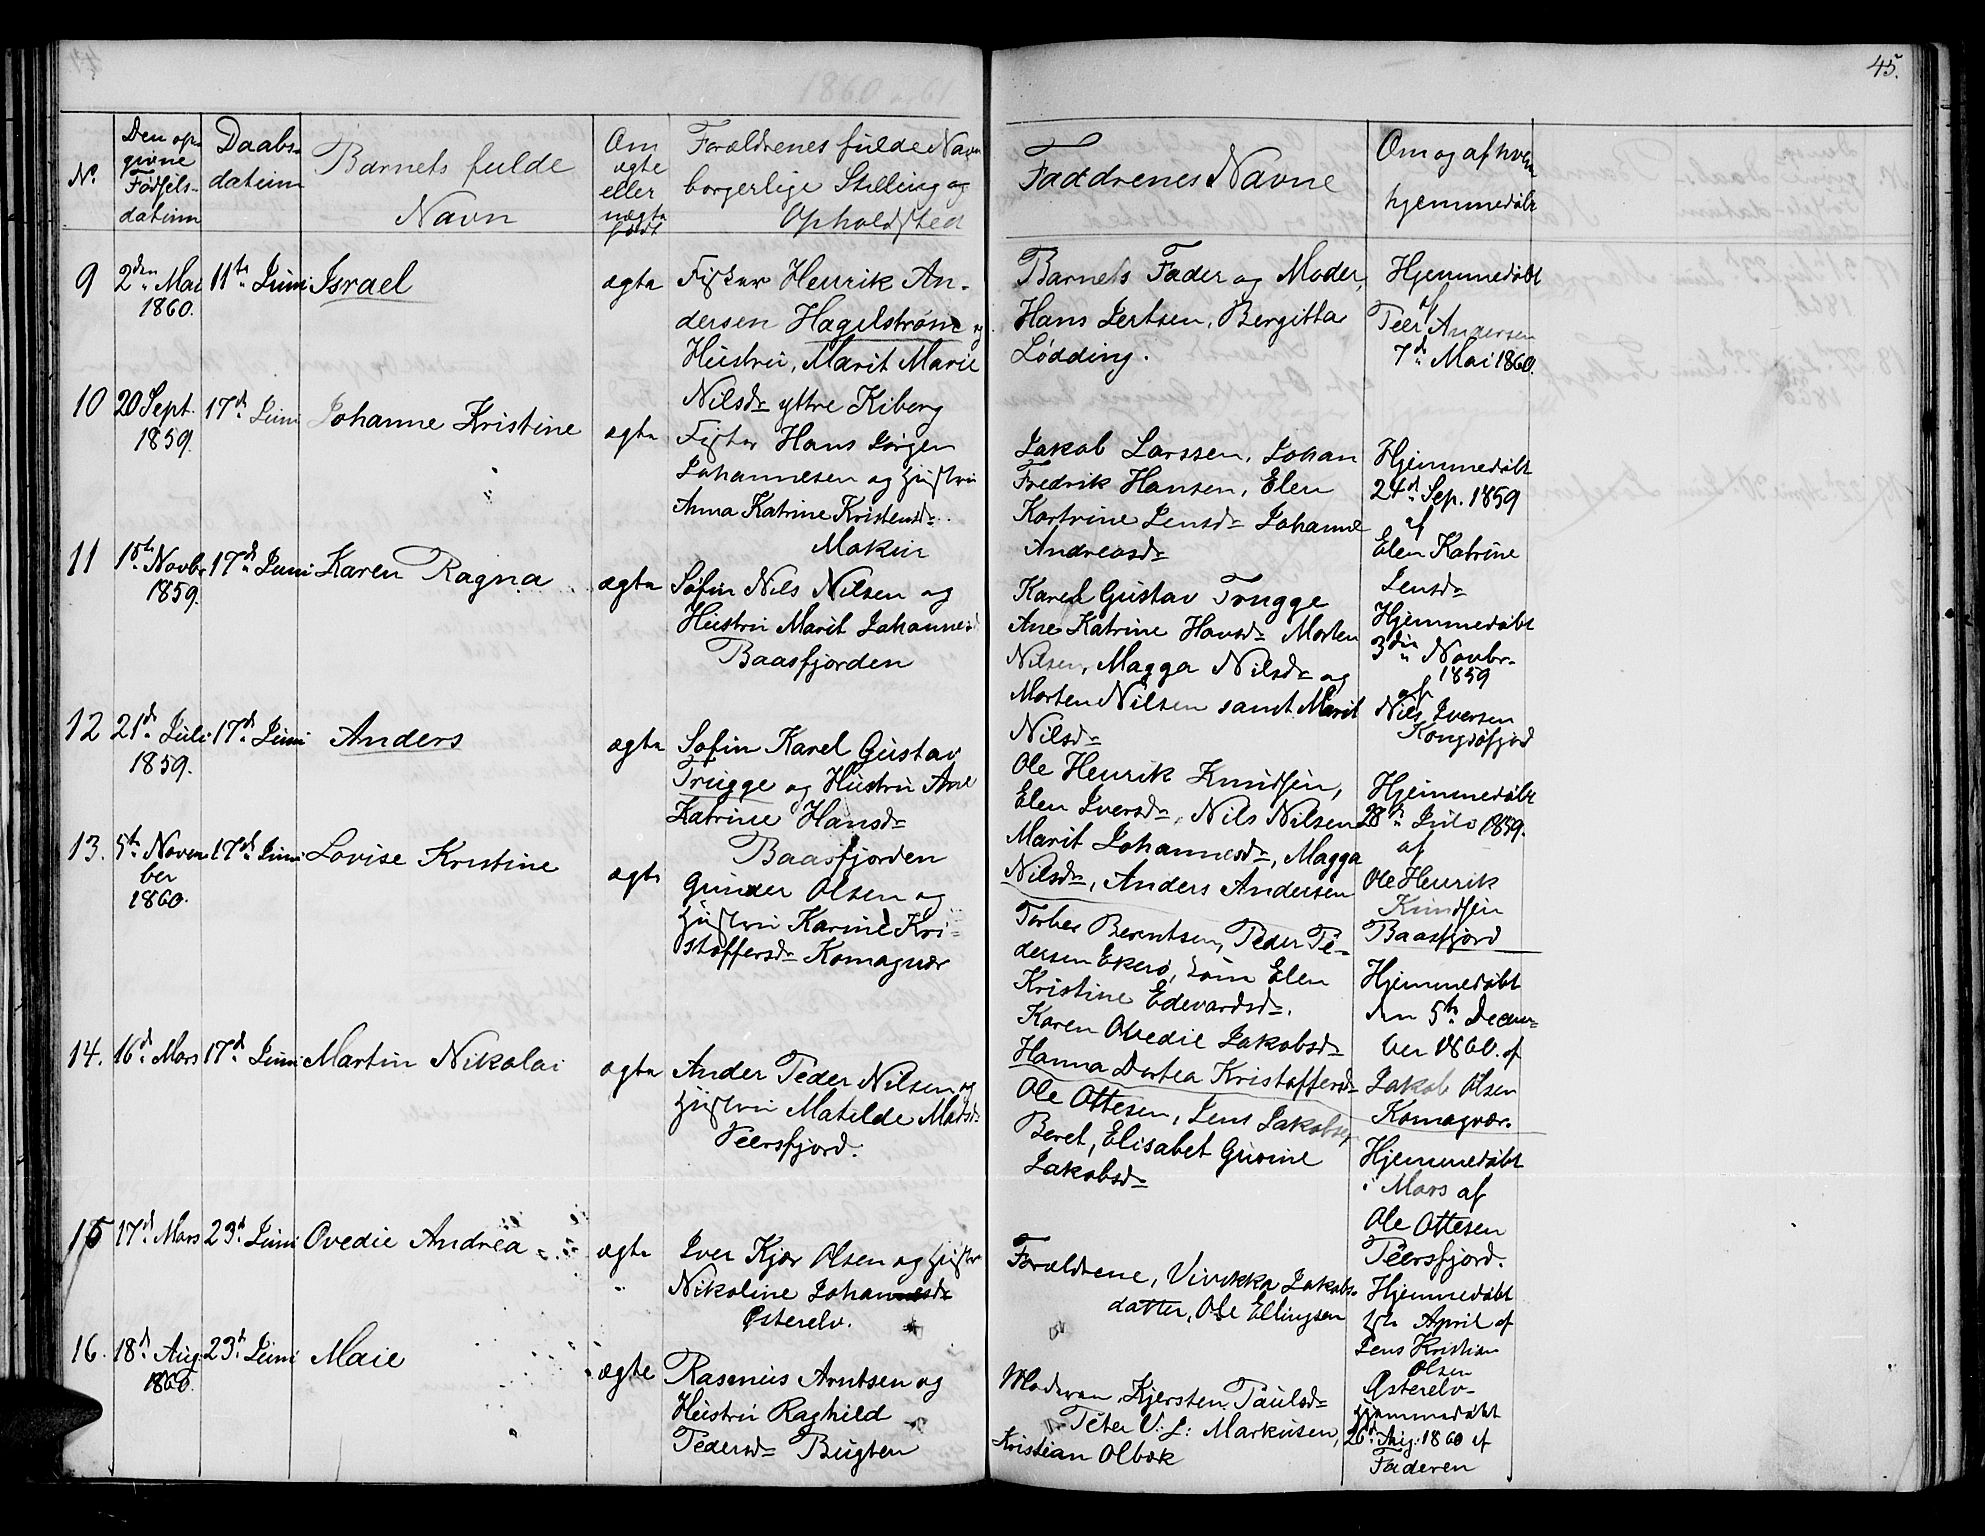 45.
No.
Den op-
givne
Fødsels-
datum
Daabs-
datum
Barnets fulde
Navn
Om
ægte
eller
uægte
født
Forældrenes fulde Navn
borgerlige Stilling og
Opholdssted
Faddrenes Navne
Om og af hvem
hjemmedøbt
9
2den Mai
1860.
11te Juni
Israel
ægte
Fisker Henrik An-
dersen Hagelstrøm og
Hustru, Marit Marie
Nilsdr yttre Kiberg
Barnets Fader og Moder,
Hans Jertsen, Bergitta
Lødding.
Hjemmedøbt
af
Peer Andersen
7d Mai 1860.
10
20 Sept.
1859.
17d Juni
Johanne Kristine
ægte
Fisker Hans Jørgen
Johannesen og Hustru
Anna Katrine Kristensdr.
Makur
Jakob Larssen, Johan
Fredrik Hansen, Elen
Kartrine Jensdr Johanne
Andreasdr
Hjemmedøbt
24d Sep. 1859
af
Elen Katrine
Jensdr
11
1ste Novbr
1859.
17d Juni
Karen Ragna
ægte
Søfin Nils Nilsen og
Hustru Marit Johannesd
Baasfjorden
Karel Gustav Trugge
Ane Katrine Hansdr Morten
Nilsen, Magga Nilsdr og
Morten Nilsen samt Marit
Nilsdr
Hjemmedøbt
3die Novbr.
1859
af
Nils Iversen
Kongsøfjord
12
21d Juli
1859.
17d Juni
Anders
ægte
Søfin Karel Gustav
Trugge og Hustru Ane
Katrine Hansdr
Baasfjorden
Ole Henrik Knudsen,
Elen Iversdr, Nils Nilsen
Marit Johannesdr, Magga
Nilsdr, Anders Andersen
Hjemmedøbt
28d Juli 1859.
af
Ole Henrik
Knudsen
Baasfjord
13.
5te Novem
ber
1860.
17d Juni
Lovise Kristine
ægte
Gunder Olsen og
Hustru Karine Kri-
stoffersdr Komagvær
Torber Berntsen, Peder Pe-
dersen Ekerø, Elen
Kristine Edevardsdr.
Karen Ovedie Jakobsdr
Hanna Dortea Kristoffersdr
Hjemmedøbt
den 5te Decem-
ber 1860. af
Jakob Olsen
Komagvær.
14.
16d Mars
17d Juni
Martin Nikolai
ægte
Ander Peder Nilsen og
Hustru Matilde Madsdr
Peersfjord.
Ole Ottesen, Jens Jakobsen
Beret, Elisabet Gurine
Jakobsdr
Hjemmedøbt
i Mars af
Ole Ottesen
Peersfjord.
15
17d Mars
23d Juni
Ovedie Andrea
ægte
Iver Kjær Olsen og Hustru
Nikoline Johannesdr
Østerelv.
Forældrene, Vivikka Jakobs-
datter, Ole Ellingsen
Hjemmedøbt
April af
Jens Kristian
Olsen
Østerelv.
16.
18d Aug.
1860.
23d Juni
Maie
ægte
Rasmus Arntsen og
Hustru Raghild
Pedersdr Bugten
Moderen, Kjersten Paulsdr
Peter V. L: Markusen,
Kristian Olbek
Hjemmedøbt
26d Aug. 1860 af
Faderen